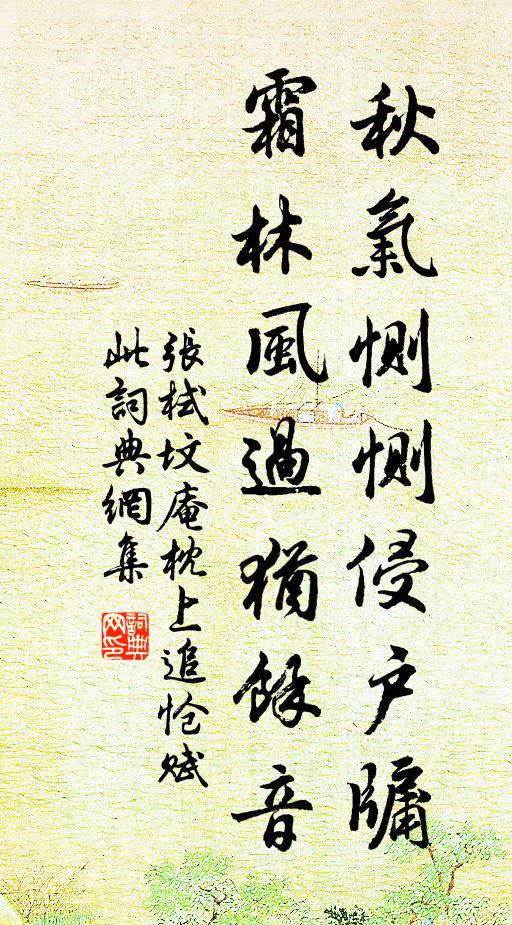 秋氣惻惻侵户牖
霜林風過猶餘音
張栻坟庵枕上追怆賦
此詞典網集
詞典网印